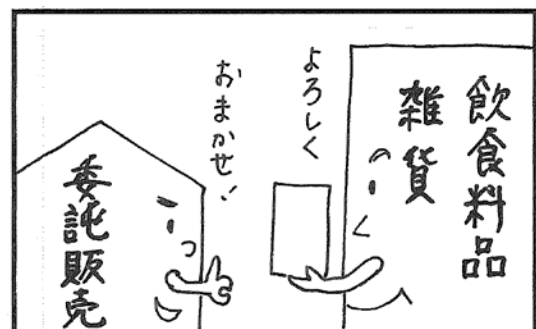 飲食料品
雑貨
よろしく
おまかせ!
委託販売